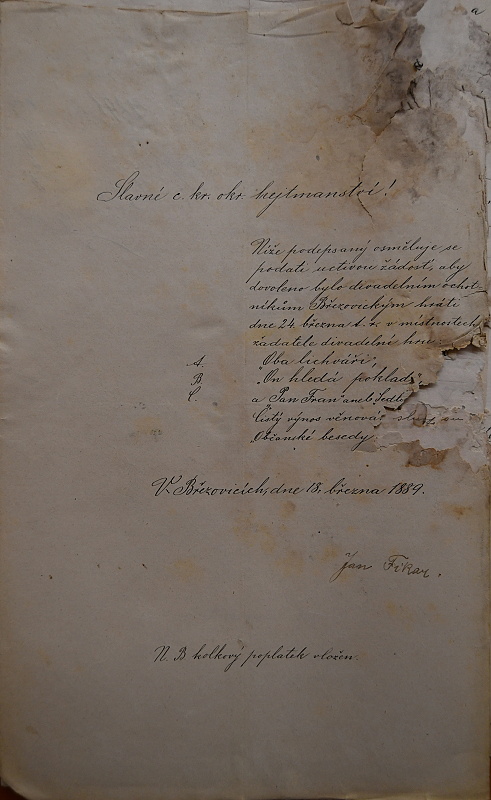 a
Slavné c. kr. okr. hejtmanství!
Níže podepsaný osměluje se
podati uctivou žádost, aby
dovoleno bylo divadelním ochot-
níkům Březovickým hráti
dne 24. března t. r. v místnostech
žadatele divadelní hru:
A. "Oba lichváři",
B. "On hledá poklad"
C. a Pan Fran" aneb
Čistý výnos věnován
Občanské besedy.
V Březovicích, dne 18. března 1889.
Jan Fikar.
N. B kolkový poplatek vložen.